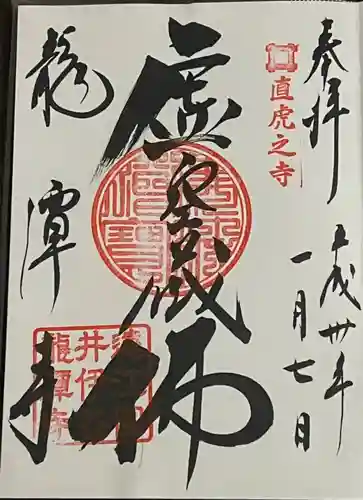 奉拝
直虎之寺
平成卅年
一月七日
虚空蔵佛
龍潭寺
井伊
龍潭寺